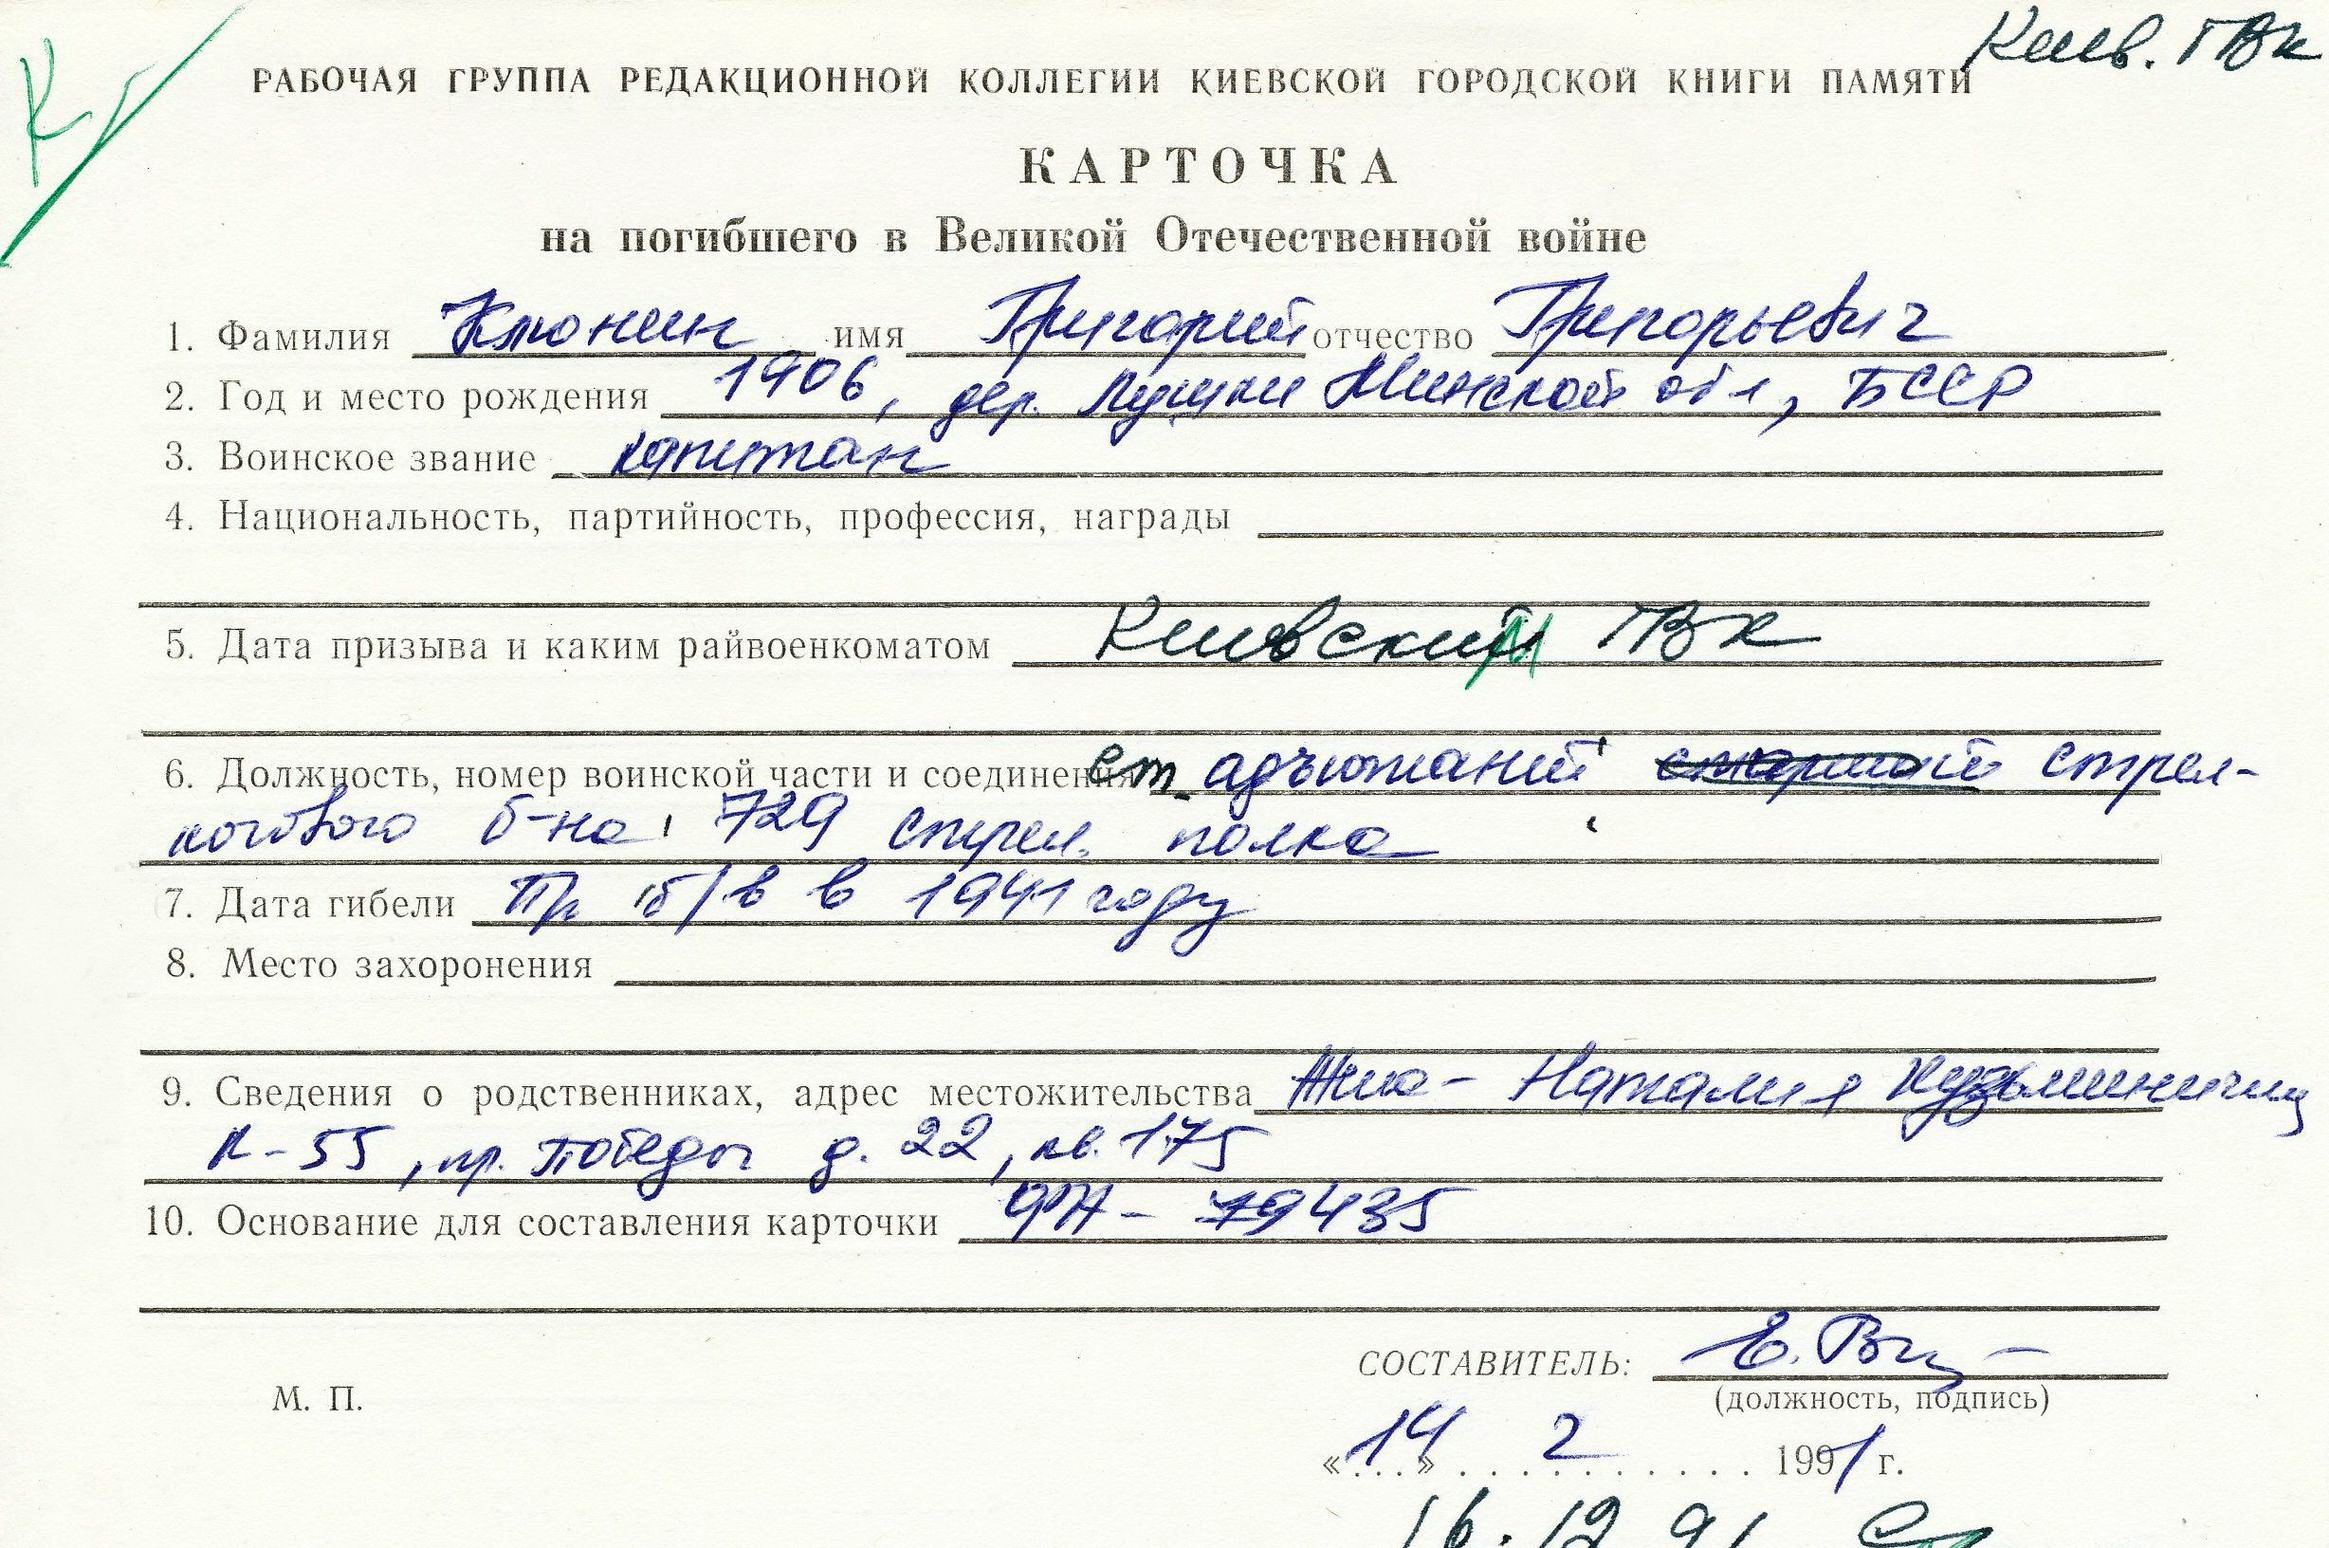 Киев. ГВК
РАБОЧАЯ ГРУППА РЕДАКЦИОННОЙ КОЛЛЕГИИ КИЕВСКОЙ ГОРОДСКОЙ КНИГИ ПАМЯТИ
КАРТОЧКА
на погибшего в Великой Отечественной войне
1. Фамилия Клюнин имя Григорий отчество Григорьевич
2. Год и место рождения 1906, дер. Минской обл, БССР
3. Воинское звание капитан
4. Национальность, партийность, профессия, награды
5. Дата призыва и каким райвоенкоматом Киевский ГВК
6. Должность, номер воинской части и соединения ст. адъютант стрел-
кового б-на 729 стрел. полка
7. Дата гибели Пр б/в в 1941 году
8. Место захоронения
9. Сведения о родственниках, адрес местожительства Жена - Наталия Кузьминична
К-55, пр. Победы д. 22, кв. 175
10. Основание для составления карточки 79435
СОСТАВИТЕЛЬ: Е.
(должность, подпись)
М. П.
«14» 2 1991 г.
16.12.91